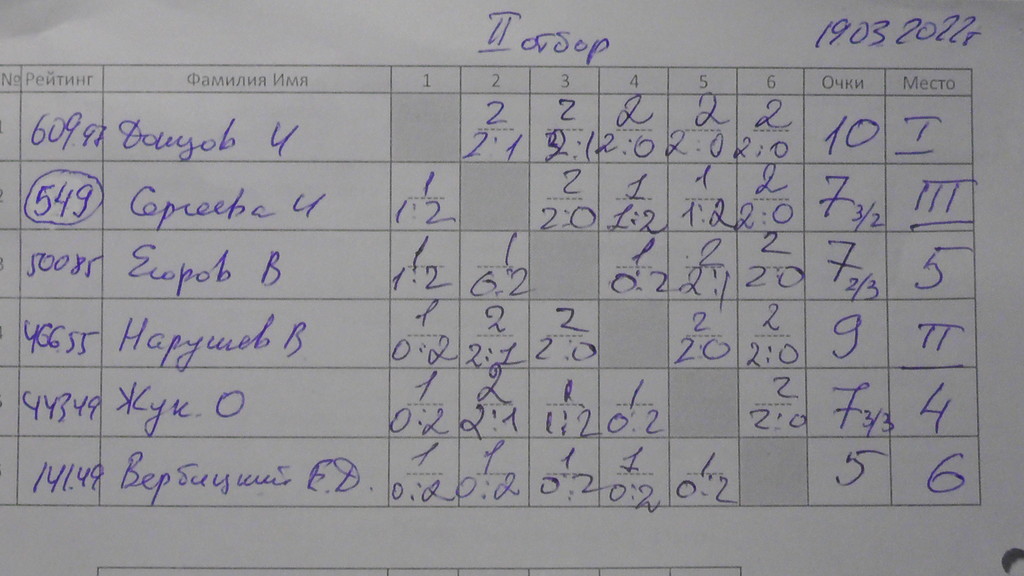 II отбор 19.03.2022г
№ Рейтинг Фамилия Имя 1 2 3 4 5 6 Очки Место
1 609.97 Донцов И 2 2:1 2 2:1 2 2:0 2 2:0 2 2:0 10 I
2 549 Сергеева И 1 1:2 2 2:0 1 1:2 1 1:2 2 2:0 7 3/2 III
3 500.85 Егоров В 1 1:2 1 0:2 1 0:2 2 2:1 2 2:0 7 2/3 5
4 466.55 Нарушев В 1 0:2 2 2:1 2 2:0 2 2:0 2 2:0 9 II
5 443.49 Жук О 1 0:2 2 2:1 1 1:2 1 0:2 2 2:0 7 3/3 4
6 141.49 Вербицкий Е.Д. 1 0:2 1 0:2 1 0:2 1 0:2 1 0:2 5 6